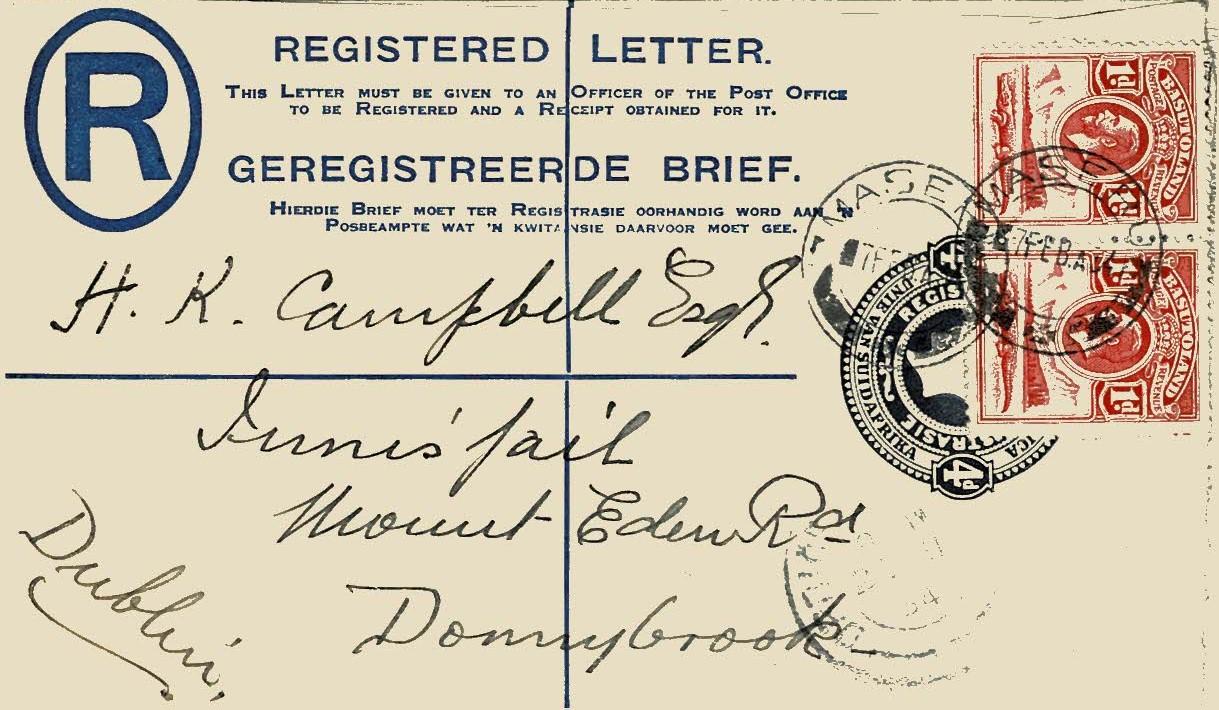 R
REGISTERED LETTER.
THIS LETTER MUST BE GIVEN TO AN OFFICER OF THE POST OFFICE
TO BE REGISTERED AND A RECEIPT OBTAINED FOR IT.
GEREGISTREERDE BRIEF.
HIERDIE BRIEF MOET TER REGISTRASIE OORHANDIG WORD AAN 'N
POSBEAMPTE WAT 'N KWITANSIE DAARVOOR MOET GEE.
H. K. Campbell Esqr.
Innis'fail
Mount Eden Rd
Donnybrook
Dublin,
BASUTOLAND
POSTAGE REVENUE
1D
1D
BASUTOLAND
POSTAGE REVENUE
1D
1D
MASERU
7 FEB
MASERU
7 FEB
REGIS
TRASIE
UNIE VAN SUID AFRIKA
4D